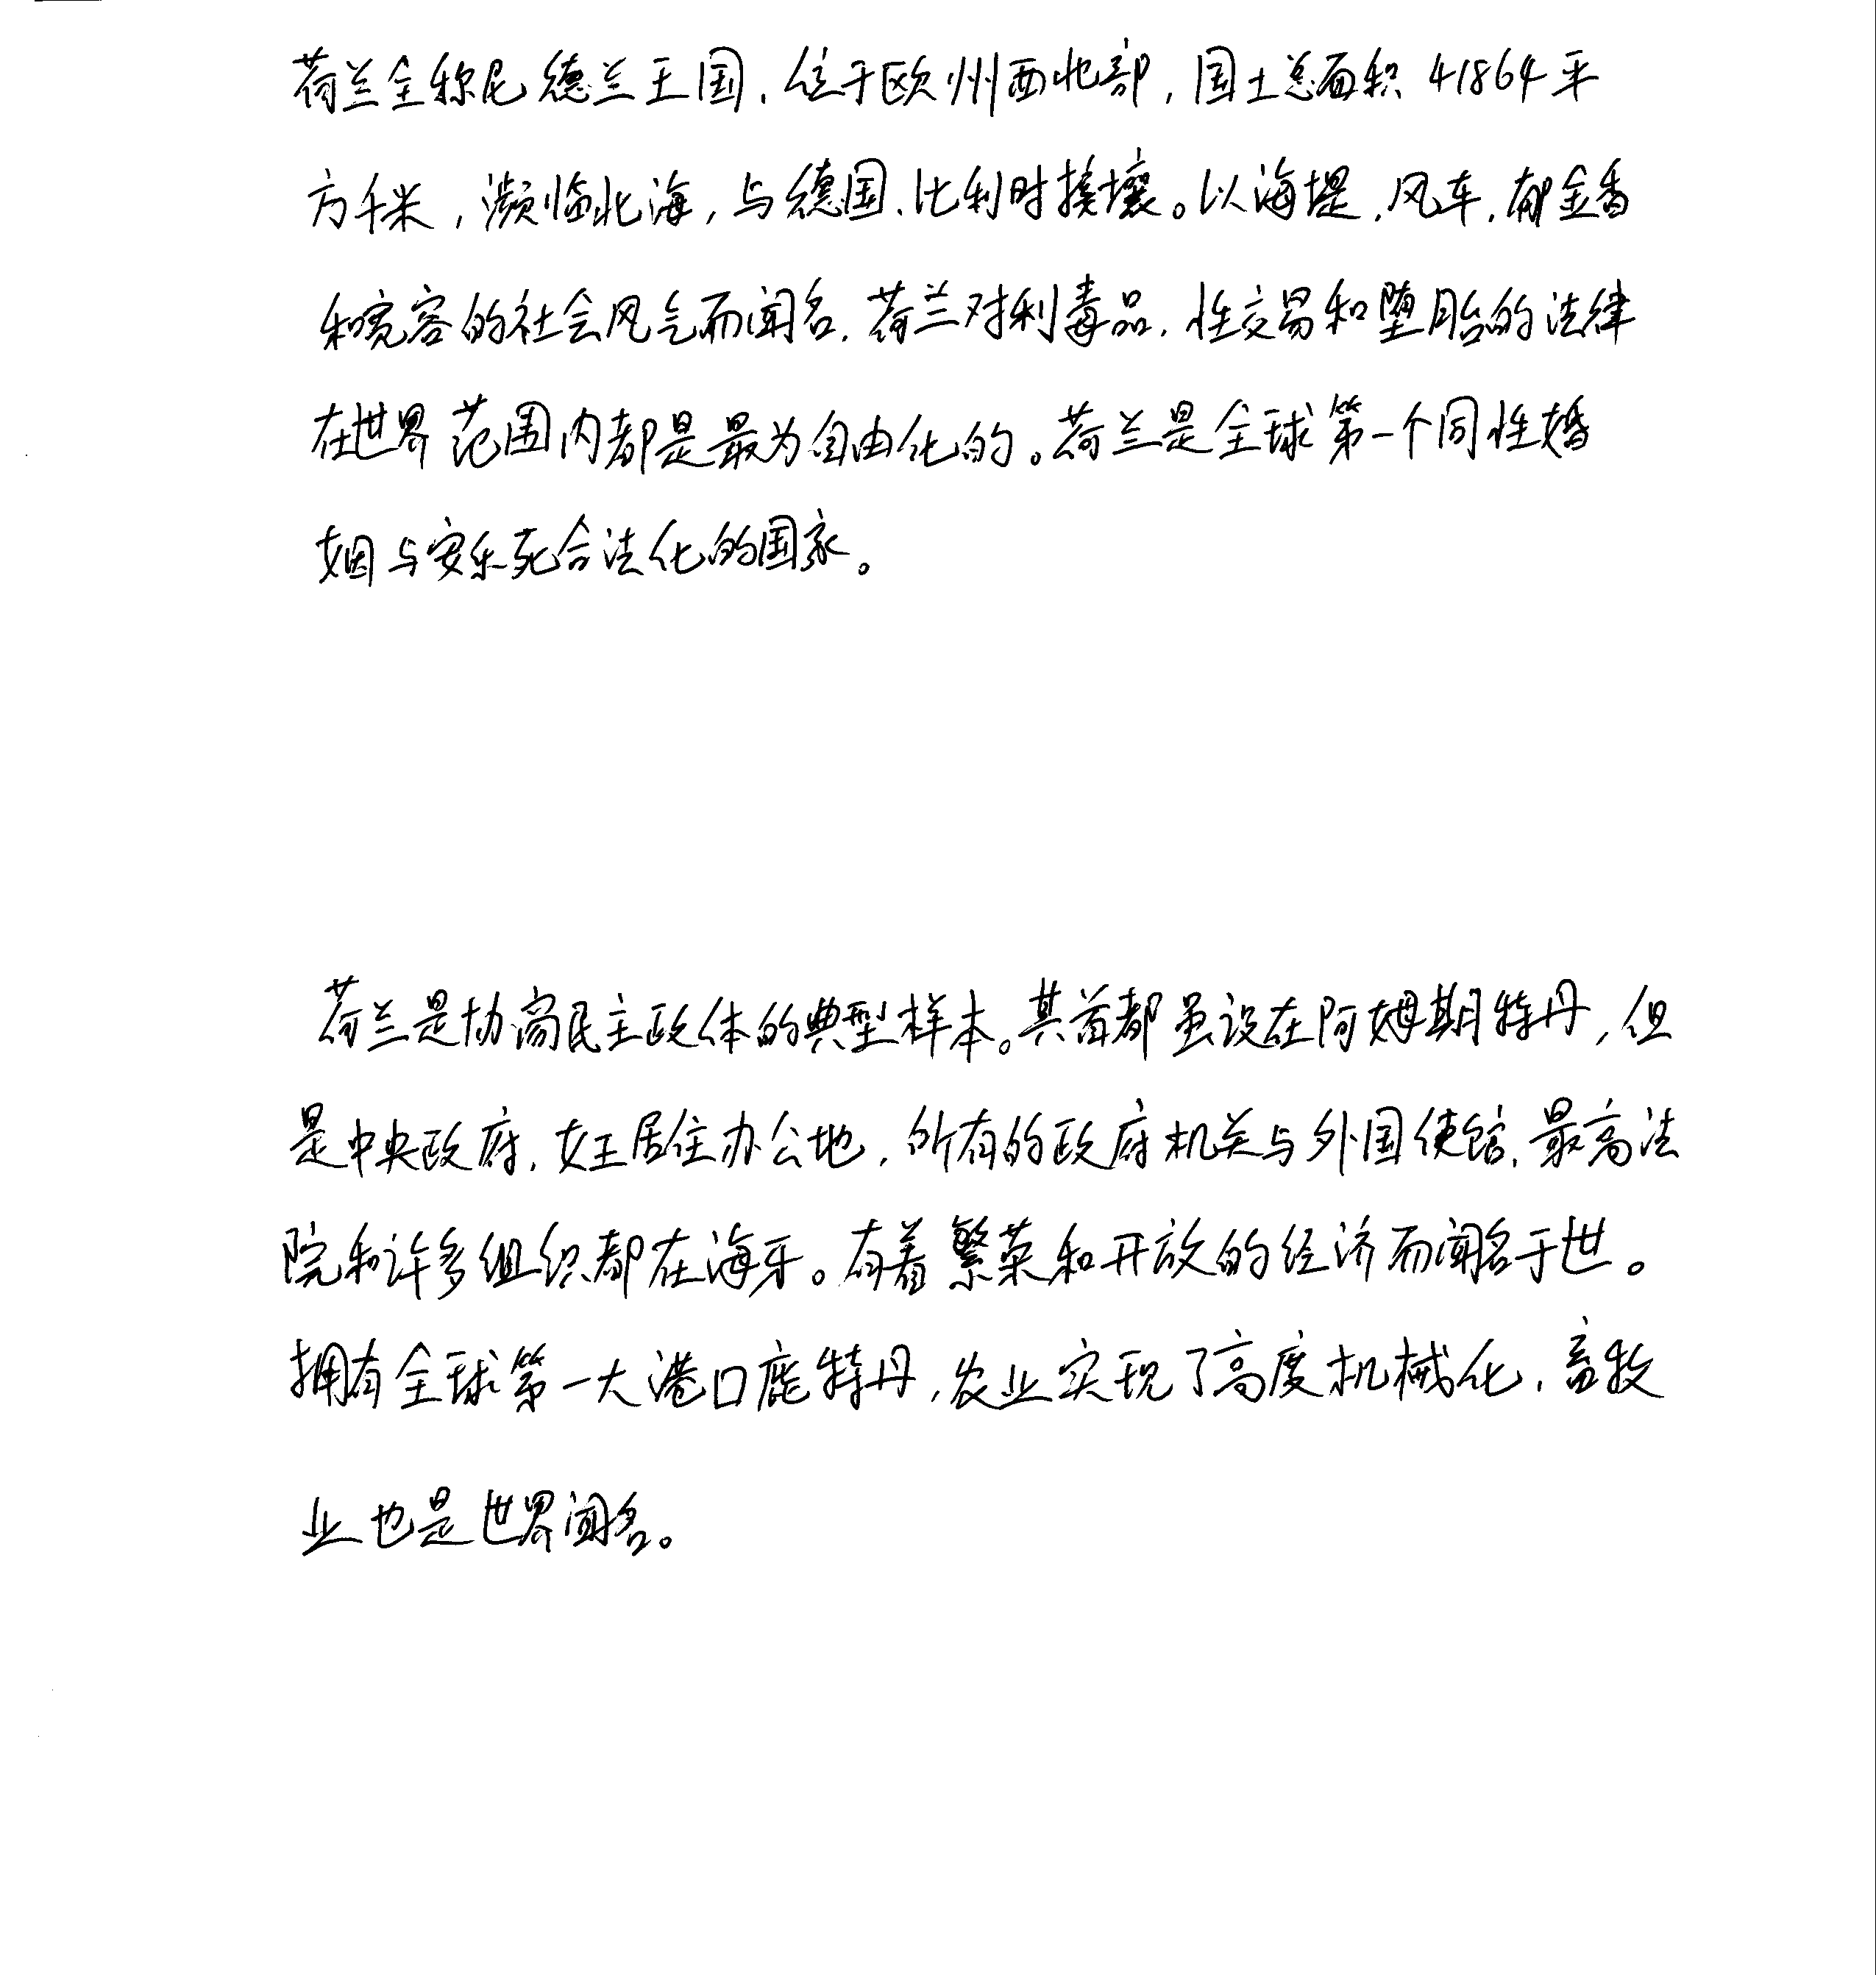 荷兰全称尼德兰王国、位于欧州西北部，国土总面积41864平
方千米，濒临北海，与德国、比利时接壤。以海堤，风车，郁金香
和宽容的社会风气而闻名，荷兰对利毒品，性交易和堕胎的法律
在世界范围内都是最为自由化的。荷兰是全球第一个同性婚
姻与安乐死合法化的国家。
荷兰是协商民主政体的典型样本。其首都虽设在阿姆期特丹，但
是中央政府，女王居住办公地，所有的政府机关与外国使馆，最高法
院和许多组织都在海牙。有着繁荣和开放的经济而闻名于世。
拥有全球第一大港口鹿特丹，农业实现了高度机械化，畜牧
业也是世界闻名。